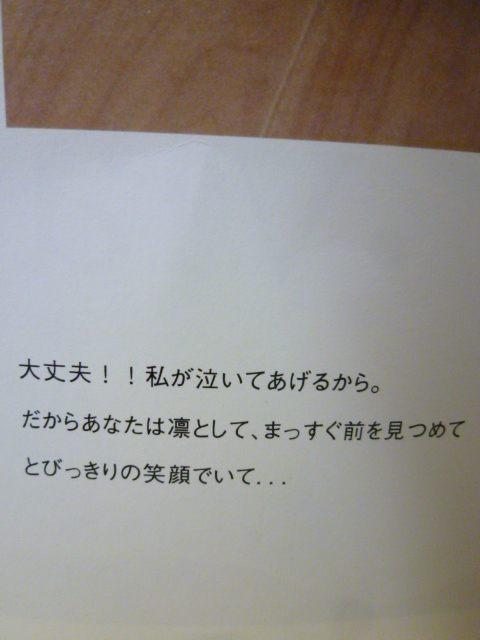 大丈夫！！私が泣いてあげるから。
だからあなたは凛として、まっすぐ前を見つめて
とびっきりの笑顔でいて...